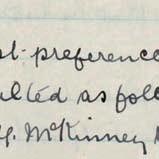 st preference
ulted as foll
y. McKinney